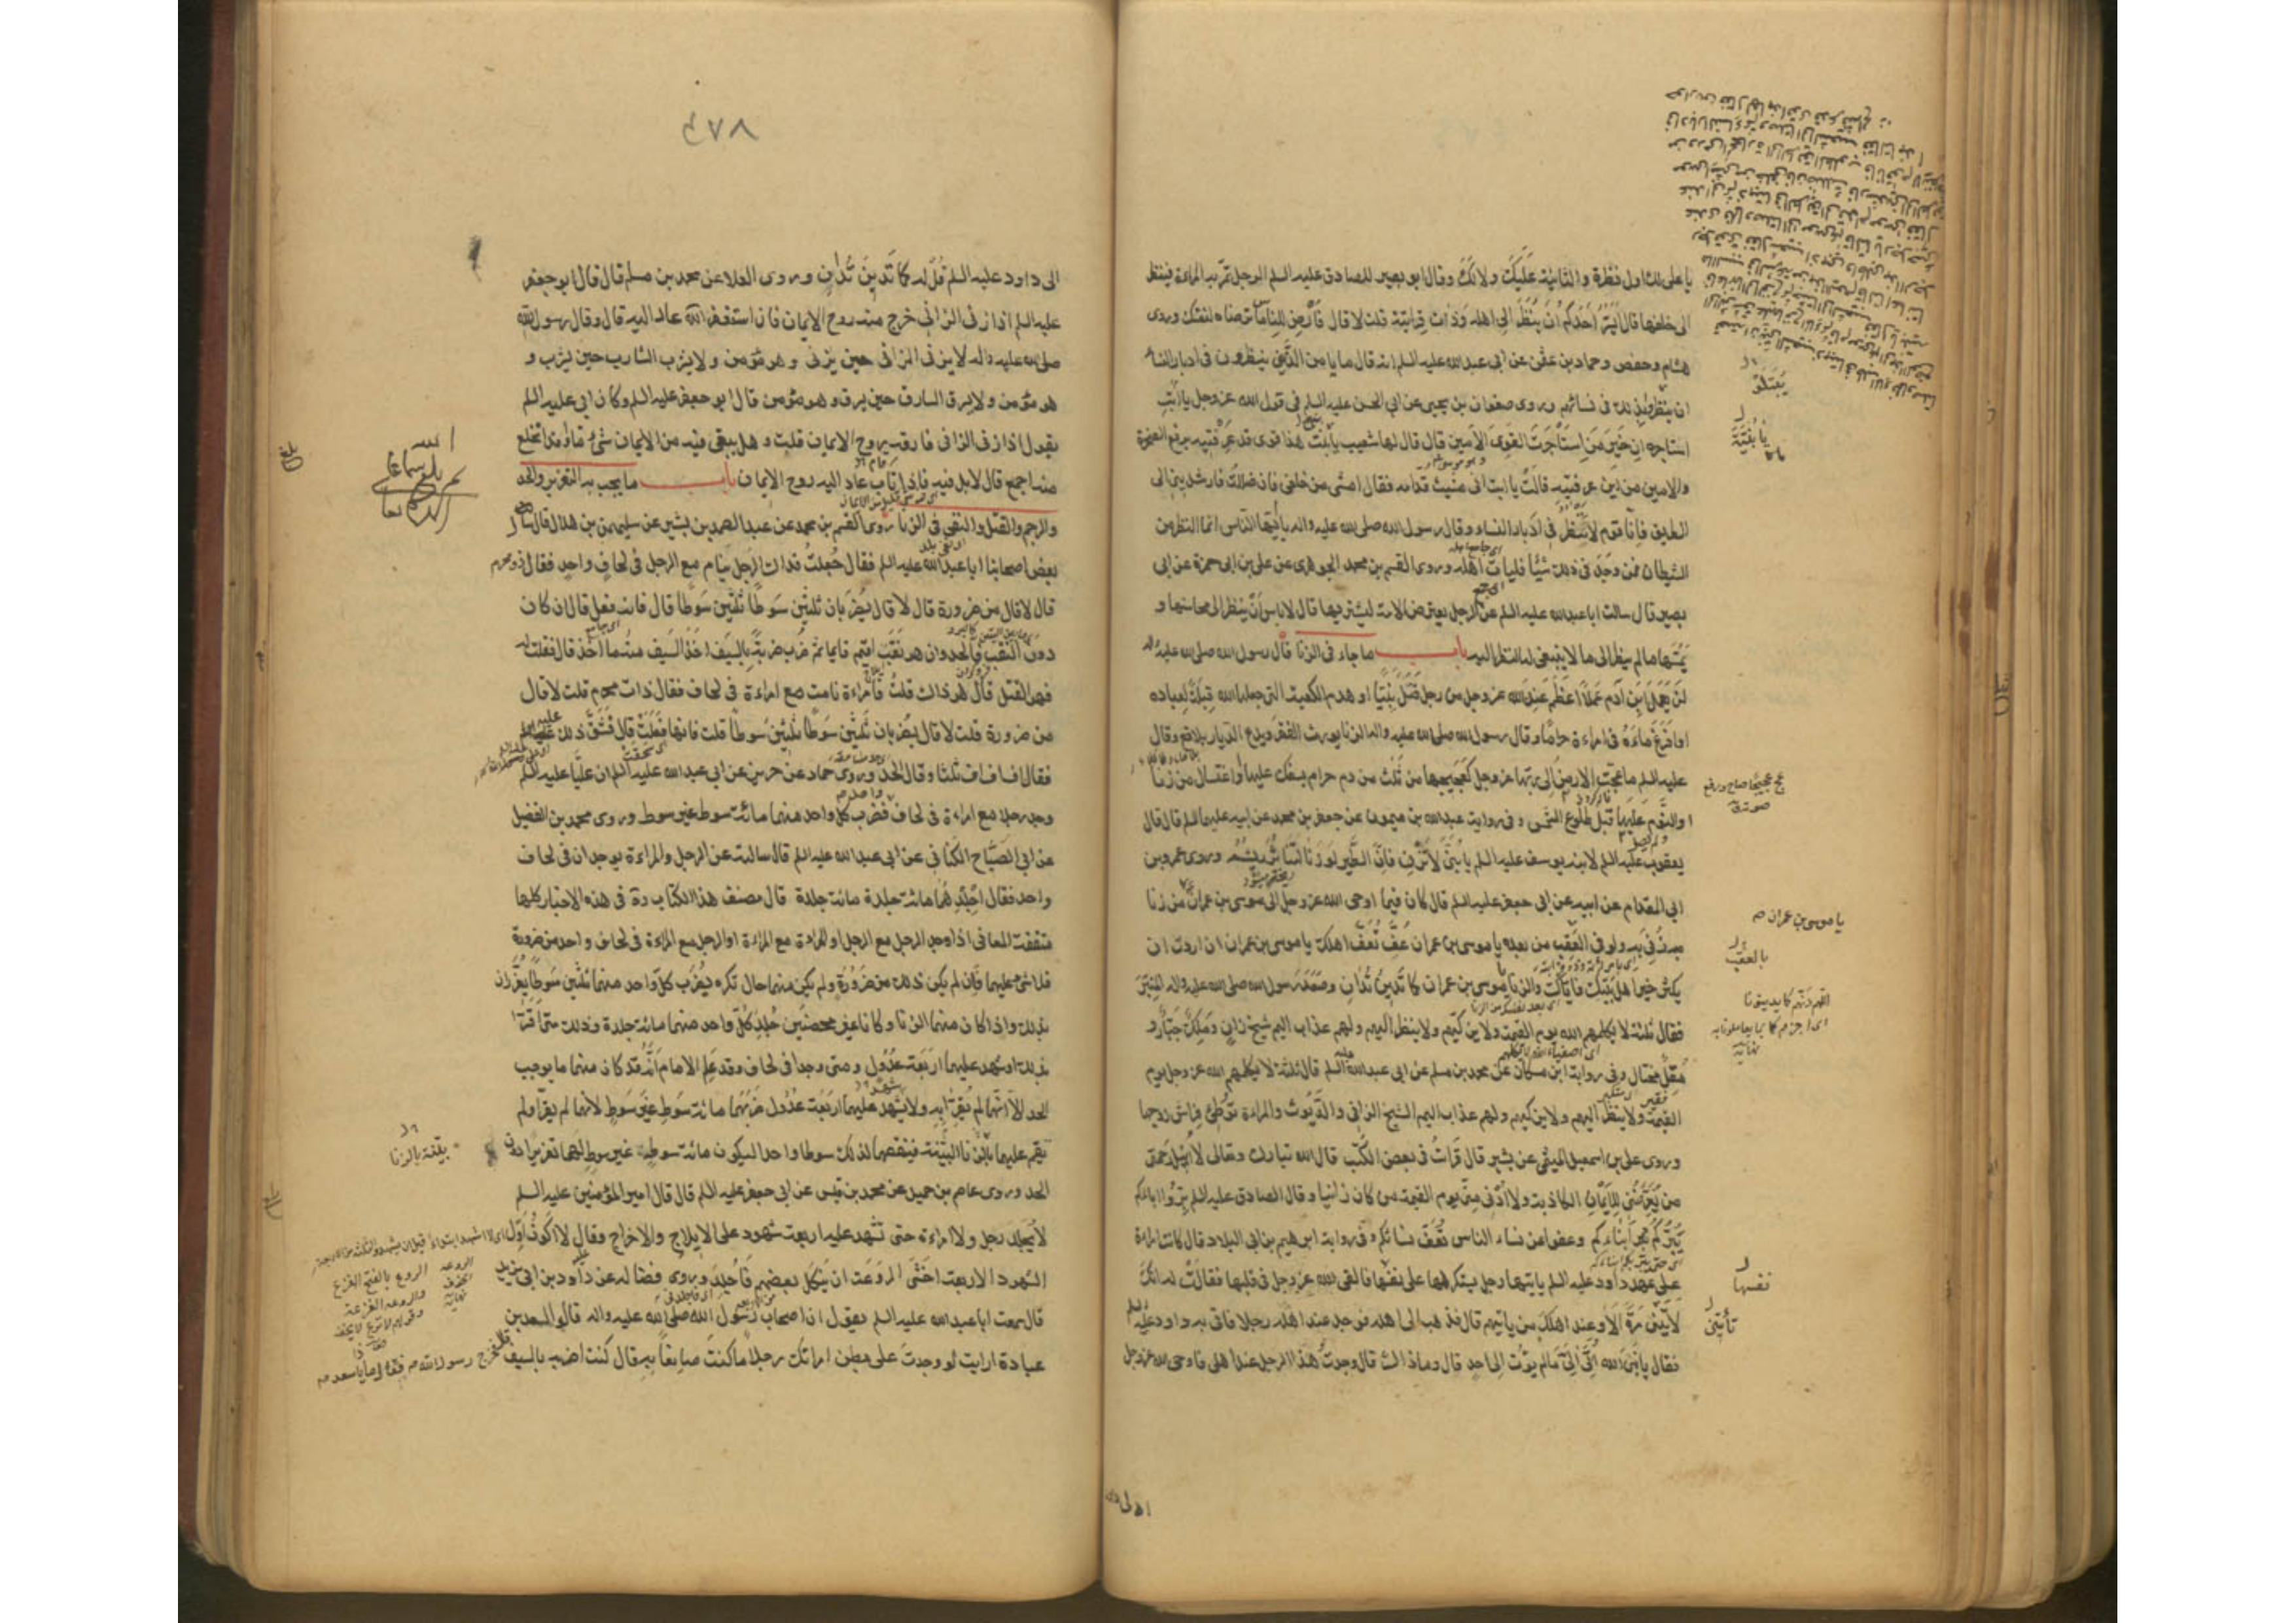 يا على لك اول نظرة والثانية عليك ولا لك وقال ابو بصير للصادق عليه السلم الرجل تمر به المراءة فينظر
الى خلفها قال ايسر احدكم ان ينظر الى اهله وذات قرابته قلت لا قال فارض للناس ما ترضاه لنفسك وروى
هشام وحفص وحماد بن عثمن عن ابى عبد الله عليه السلم انه قال ما يامن الذين ينظرون فى ادبار النساء
ان ينظر بذلك فى نسائهم وروى صفوان بن يحيى عن ابى الحسن عليه السلم فى قول الله عز وجل يا ابت
استاجره ان خير من استاجرت القوى الامين قال قال لها شعيب يا بنت هذا قوى قد عرفتيه برفع الصخرة
والامين من اين عرفتيه قالت يا ابت انى مشيت قدامه فقال امشى من خلفى فان ضللت فارشدينى الى
الطريق فانا قوم لا ننظر فى ادبار النساء وقال رسول الله صلى الله عليه واله يا ايها الناس انما النظر من
الشيطان فمن وجد فى ذلك شيئا فليات اهله وروى القسم بن محمد الجوهرى عن على بن ابى حمزة عن ابى
بصير قال سالت ابا عبد الله عليه السلم عن الرجل يعترض الامة ليشتريها قال لا باس ان ينظر الى محاسنها و
يمسها ما لم ينظر الى ما لا ينبغى له النظر اليه باب ما جاء فى الزنا قال رسول الله صلى الله عليه واله
لن يعمل ابن آدم عملا اعظم عند الله عز وجل من رجل قتل نبيا او هدم الكعبة التى جعلها الله قبلة لعباده
او افرغ ماءه فى امراءة حراما وقال رسول الله صلى الله عليه واله الزنا يورث الفقر ويدع الديار بلاقع وقال
عليه السلم ما عجت الارض الى ربها عز وجل كعجيجها من ثلث من دم حرام يسفك عليها واغتسال من زنا
او النوم عليها قبل طلوع الشمس وفى رواية عبد الله بن ميمون عن جعفر بن محمد عن ابيه عليهما السلم قال قال
يعقوب عليه السلم لابنه يوسف عليه السلم يا بنى لا تزن فان الطير لو زنا لتناثر ريشه وروى عمرو بن
ابى المقدام عن ابيه عن ابى جعفر عليه السلم قال كان فيما اوحى الله عز وجل الى موسى بن عمران من زنا
زنى به ولو فى العقب من بعده يا موسى بن عمران عف تعف اهلك يا موسى بن عمران ان اردت ان
يكثر خير اهل بيتك فاياك والزنا يا موسى بن عمران كما تدين تدان وصعد رسول الله صلى الله عليه واله المنبر
فقال ثلثة لا يكلمهم الله يوم القيمة ولا يزكيهم ولا ينظر اليهم ولهم عذاب اليم شيخ زان وملك جبار و
مقل مختال وفى رواية ابن مسكان عن محمد بن مسلم عن ابى عبد الله عليه السلم قال ثلثة لا يكلمهم الله عز وجل يوم
القيمة ولا ينظر اليهم ولا يزكيهم ولهم عذاب اليم الشيخ الزانى والديوث والمراءة توطئ فراش زوجها
وروى على بن اسمعيل الميثمى عن بشير قال قرات فى بعض الكتب قال الله تبارك وتعالى لا انيل رحمتى
من يعرضنى للايمان الكاذبة ولا ادنى منى يوم القيمة من كان زانيا وقال الصادق عليه السلم بروا اباءكم
يبركم ابناءكم وعفوا عن نساء الناس تعف نسائكم وفى رواية ابرهيم بن ابى البلاد قال كانت امراءة
على عهد داود عليه السلم ياتيها رجل يستكرهها على نفسها فالقى الله عز وجل فى قلبها فقالت له انك
لا تاتينى مرة الا وعند اهلك من ياتيهم قال فذهب الى اهله فوجد عند اهله رجلا فاتى به داود عليه السلم
فقال يا نبى الله اتى الى ما لم يؤت الى احد قال وما ذاك قال وجدت هذا الرجل عند اهلى فاوحى الله عز وجل
يا بنية
يا موسى بن عمران
بالعقب
نفسها
تأتينى
الى داود
٤٧٨
الى داود عليه السلم قل له كما تدين تدان وروى العلا عن محمد بن مسلم قال قال ابو جعفر
عليه السلم اذا زنى الزانى خرج منه روح الايمان فان استغفر الله عاد اليه قال وقال رسول الله
صلى الله عليه واله لا يزنى الزانى حين يزنى وهو مؤمن ولا يشرب الشارب حين يشرب و
هو مؤمن ولا يسرق السارق حين يسرق وهو مؤمن قال ابو جعفر عليه السلم وكان ابى عليه السلم
يقول اذا زنى الزانى فارقه روح الايمان قلت وهل يبقى فيه من الايمان شئ ما او قد انخلع
منه اجمع قال لا بل فيه فاذا تاب عاد اليه روح الايمان باب ما يجب به التعزير والحد
والرجم والقتل والنفى فى الزنا روى القسم بن محمد عن عبد الصمد بن بشير عن سليمن بن هلال قال سال
بعض اصحابنا ابا عبد الله عليه السلم فقال جعلت فداك الرجل ينام مع الرجل فى لحاف واحد فقال ذو محرم
قال لا قال من ضرورة قال لا قال يضربان ثلثين سوطا ثلثين سوطا قال فانه فعل قال ان كان
دون الثقب فالحد وان هو ثقب اقيم قايما ثم ضرب ضربة بالسيف اخذ السيف منه ما اخذ قال فقلت له
فهو القتل قال هو ذاك قلت فامراءة نامت مع امراءة فى لحاف فقال ذات محرم قلت لا قال
من ضرورة قلت لا قال يضربان ثلثين سوطا ثلثين سوطا قلت فانها فعلت قال فشق ذلك عليه
فقال اف اف اف ثلثا وقال الحد وروى حماد عن حريز عن ابى عبد الله عليه السلم ان عليا عليه السلم
وجد رجلا مع امراءة فى لحاف فضرب كل واحد منهما مائة سوط غير سوط وروى محمد بن الفضيل
عن ابى الصباح الكنانى عن ابى عبد الله عليه السلم قال سالته عن الرجل والمراءة يوجدان فى لحاف
واحد فقال اجلدهما مائة جلدة مائة جلدة قال مصنف هذا الكتاب ره فى هذه الاخبار كلها
متفقة المعانى اذا وجد الرجل مع الرجل او المراءة مع المراءة او الرجل مع المراءة فى لحاف واحد من ضرورة
فلا شئ عليهما فان لم يكن ذلك من ضرورة ولم يكن منهما حال تكره يضرب كل واحد منهما ثلثين سوطا يعزران
بذلك واذا كان منهما الزنا وكانا غير محصنين جلد كل واحد منهما مائة جلدة وذلك متى اقرا
بذلك او شهد عليهما اربعة عدول ومتى وجدا فى لحاف وقد علم الامام انه قد كان منهما ما يوجب
الحد الا انهما لم يقرا به ولا شهد عليهما اربعة عدول ضربهما مائة سوط غير سوط لانهما لم يقرا ولم
تقم عليهما بالزنا البينة فينقصهما لذلك سوطا واحدا ليكون مائة سوط غير سوط لهما تعزيرا دون
الحد وروى عاصم بن حميد عن محمد بن قيس عن ابى جعفر عليه السلم قال قال امير المؤمنين عليه السلم
لا يجلد رجل ولا امراءة حتى تشهد عليه اربعة شهود على الايلاج والاخراج وقال لا اكون اول
الشهود الاربعة اخشى الروعة ان ينكل بعضهم فاجلد وروى فضالة عن داود بن ابى يزيد
قال سمعت ابا عبد الله عليه السلم يقول ان اصحاب رسول الله صلى الله عليه واله قالوا لسعد بن
عبادة ارايت لو وجدت على بطن امراتك رجلا ما كنت صانعا به قال كنت اضربه بالسيف
بلغ سماعا
بينة بالزنا
الروع بالفتح الفزع
والروعة الفزعة
فخرج رسول الله ص فقال ما ذا يا سعد